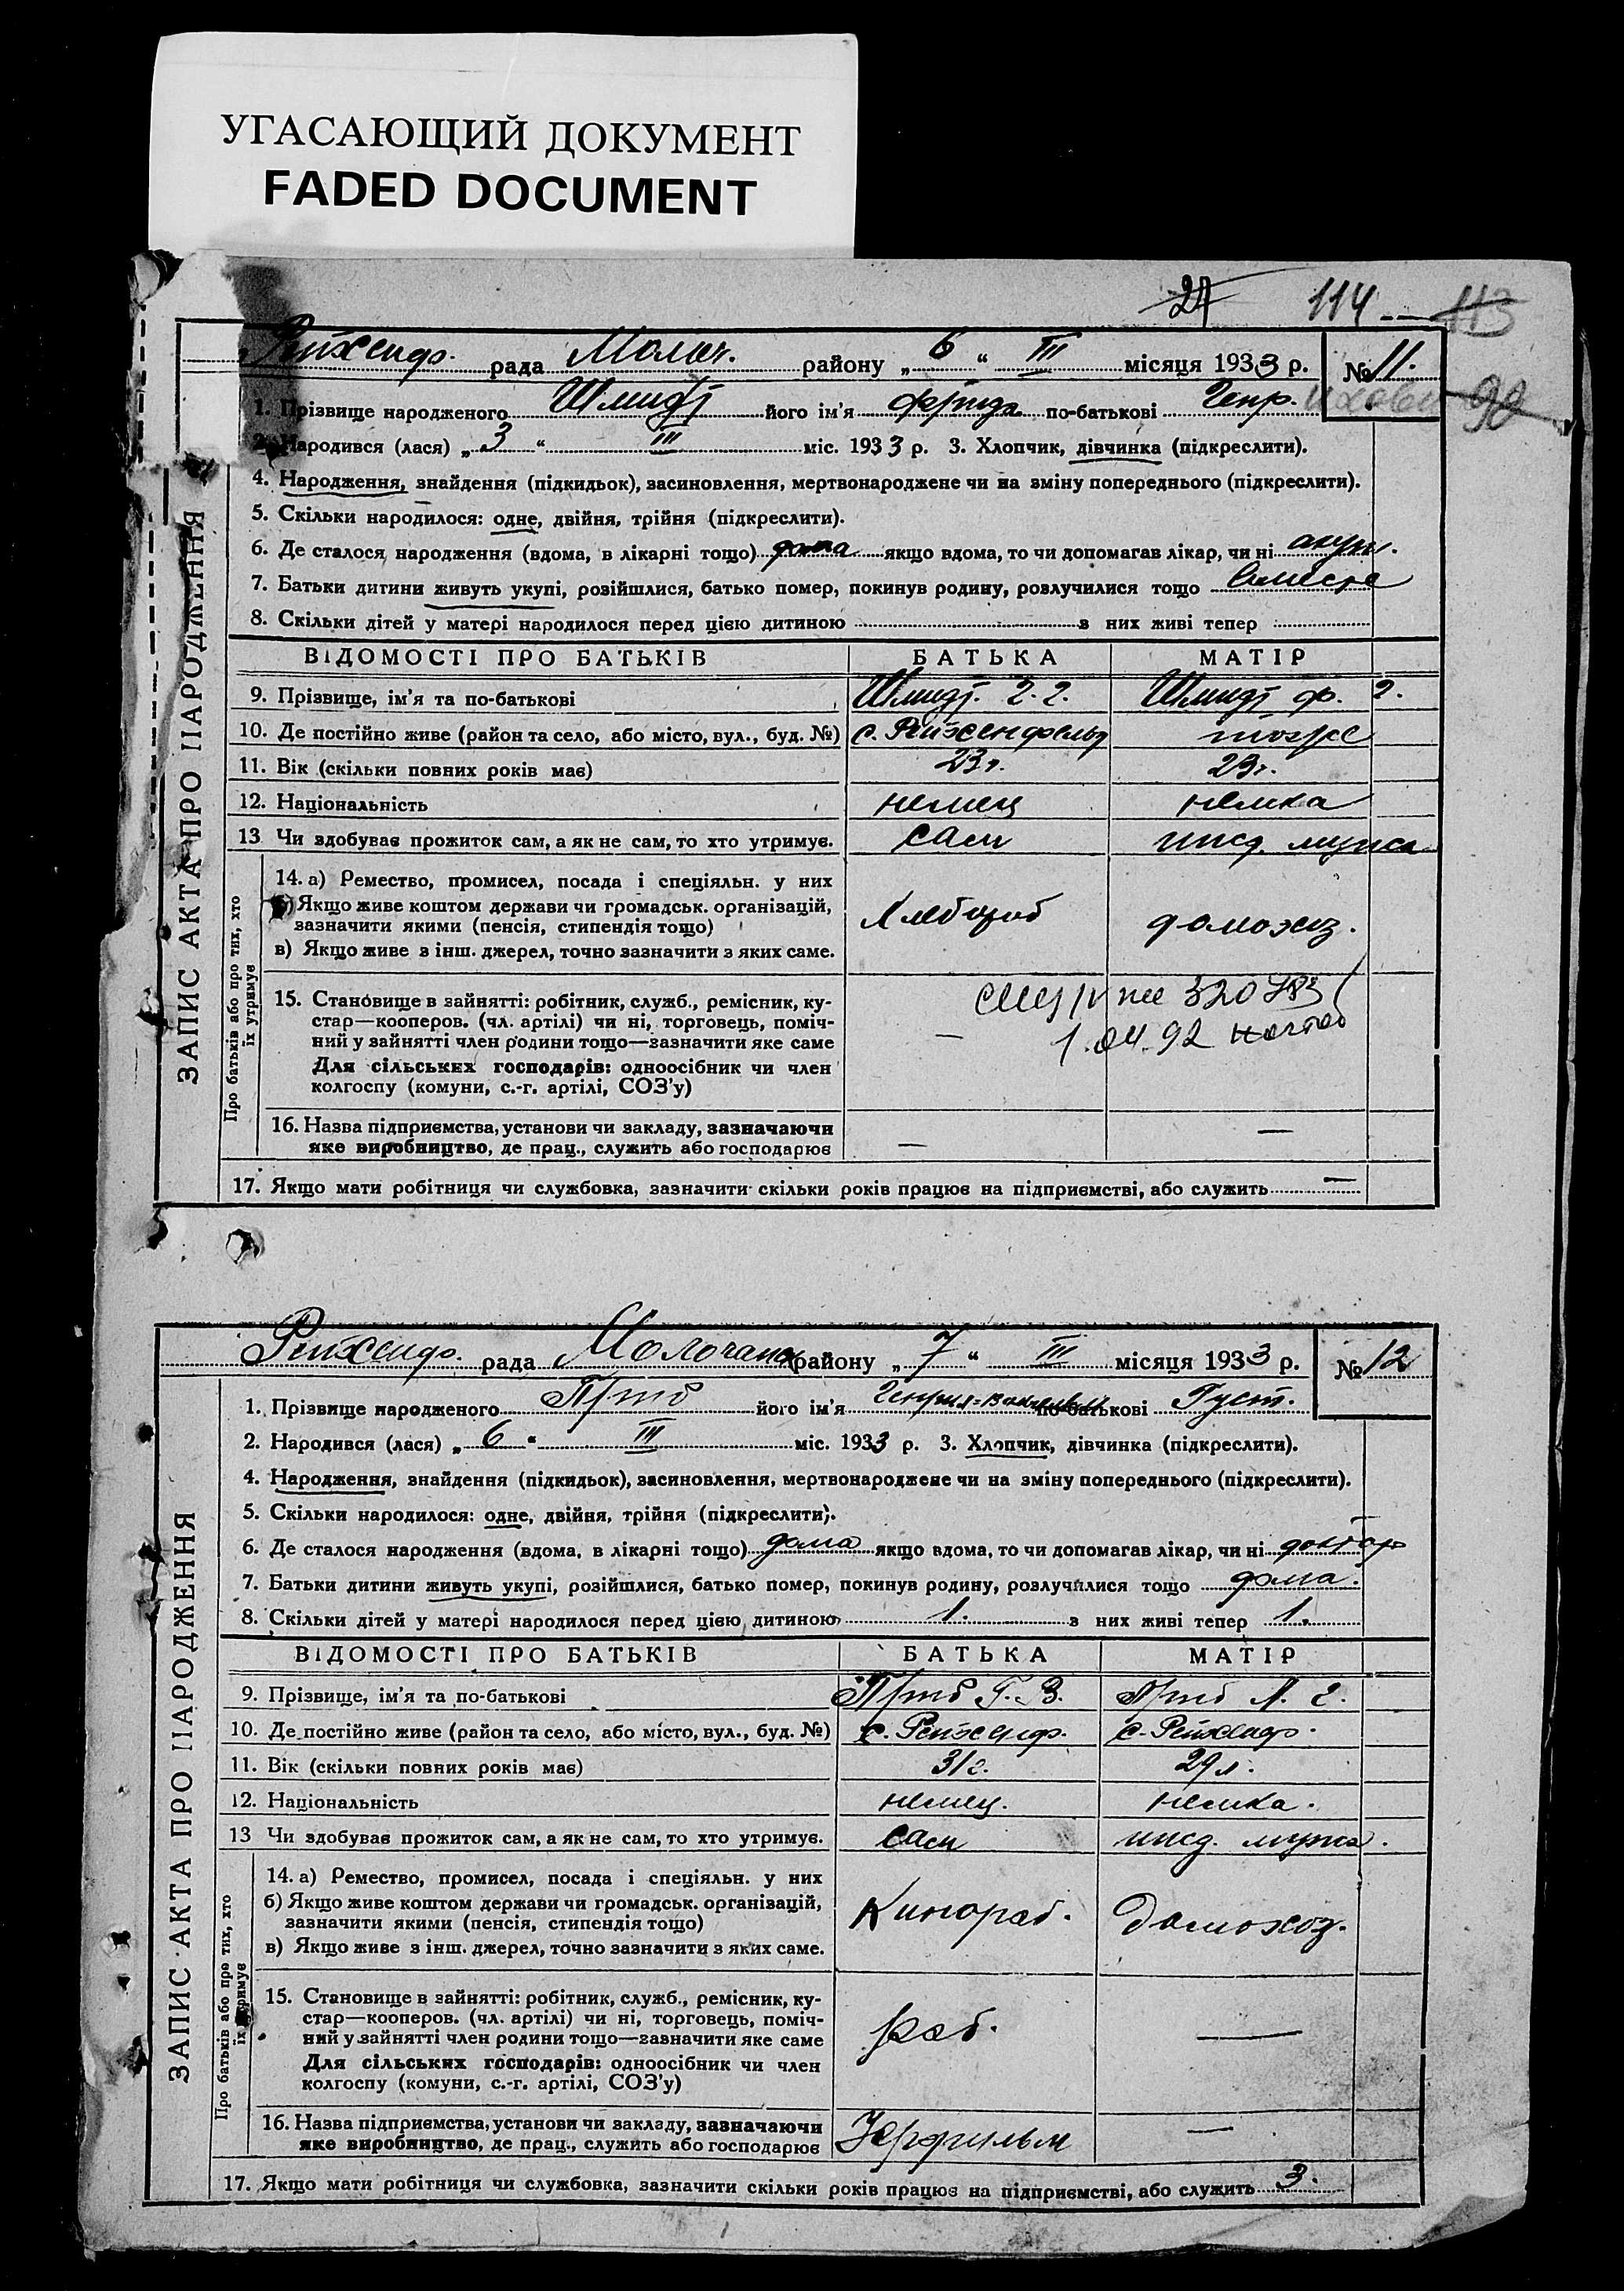 УГАСАЮЩИЙ ДОКУМЕНТ
FADED DOCUMENT
27 114 113
Рейхендр. рада Молоч. району „6“ III місяця 1933 р. № 11.
90
1. Прізвище народженого Шмидт його ім’я Фрида по-батькові Генр.
2. Народився (лася) „3“ III міс. 1933 р. 3. Хлопчик, дівчинка (підкреслити).
4. Народження, знайдення (підкидьок), засиновлення, мертвонароджене чи на зміну попереднього (підкреслити).
5. Скільки народилося: одне, двійня, трійня (підкреслити).
6. Де сталося народження (вдома, в лікарні тощо) дома якщо вдома, то чи допомагав лікар, чи ні акуш.
7. Батьки дитини живуть укупі, розійшлися, батько помер, покинув родину, розлучилися тощо вместе
8. Скільки дітей у матері народилося перед цією дитиною з них живі тепер
ЗАПИС АКТА ПРО НАРОДЖЕННЯ
ВІДОМОСТІ ПРО БАТЬКІВ БАТЬКА МАТІР
9. Прізвище, ім’я та по-батькові Шмидт. Г. Г. Шмидт Ф. Г.
10. Де постійно живе (район та село, або місто, вул., буд. №) с. Рейхенфельд тоже
11. Вік (скільки повних років має) 23 г. 23 г.
12. Національність немец немка
13 Чи здобуває прожиток сам, а як не сам, то хто утримує. сам ижд. мужа
Про батьків або про тих, хто їх утримує
14. а) Ремество, промисел, посада і спеціяльн. у них
б) Якщо живе коштом держави чи громадськ. організацій,
зазначити якими (пенсія, стипендія тощо)
в) Якщо живе з інш. джерел, точно зазначити з яких саме.
Хлебороб домохоз.
15. Становище в зайнятті: робітник, служб., ремісник, ку-
стар—кооперов. (чл. артілі) чи ні, торговець, поміч-
ний у зайнятті член родини тощо—зазначити яке саме
Для сільських господарів: одноосібник чи член
колгоспу (комуни, с.-г. артілі, СОЗ’у)
—
1.04.92
16. Назва підприємства, установи чи закладу, зазначаючи
яке виробництво, де прац., служить або господарює — —
17. Якщо мати робітниця чи службовка, зазначити скільки років працює на підприємстві, або служить —
Рейхендр. рада Молочанск району „7“ III місяця 1933 р. № 12
1. Прізвище народженого його ім’я по-батькові Густ.
2. Народився (лася) „6“ III міс. 1933 р. 3. Хлопчик, дівчинка (підкреслити).
4. Народження, знайдення (підкидьок), засиновлення, мертвонароджене чи на зміну попереднього (підкреслити).
5. Скільки народилося: одне, двійня, трійня (підкреслити).
6. Де сталося народження (вдома, в лікарні тощо) дома якщо вдома, то чи допомагав лікар, чи ні доктор
7. Батьки дитини живуть укупі, розійшлися, батько помер, покинув родину, розлучилися тощо дома.
8. Скільки дітей у матері народилося перед цією дитиною 1. з них живі тепер 1.
ЗАПИС АКТА ПРО НАРОДЖЕННЯ
ВІДОМОСТІ ПРО БАТЬКІВ БАТЬКА МАТІР
9. Прізвище, ім’я та по-батькові Г. В. А. Г.
10. Де постійно живе (район та село, або місто, вул., буд. №) с. Рейхендр. с. Рейхендр.
11. Вік (скільки повних років має) 31 г. 29 л.
12. Національність немец. немка.
13 Чи здобуває прожиток сам, а як не сам, то хто утримує. сам ижд. мужа.
Про батьків або про тих, хто їх утримує
14. а) Ремество, промисел, посада і спеціяльн. у них
б) Якщо живе коштом держави чи громадськ. організацій,
зазначити якими (пенсія, стипендія тощо)
в) Якщо живе з інш. джерел, точно зазначити з яких саме.
Кинораб. домохоз.
15. Становище в зайнятті: робітник, служб., ремісник, ку-
стар—кооперов. (чл. артілі) чи ні, торговець, поміч-
ний у зайнятті член родини тощо—зазначити яке саме
Для сільських господарів: одноосібник чи член
колгоспу (комуни, с.-г. артілі, СОЗ’у)
раб. —
16. Назва підприємства, установи чи закладу, зазначаючи
яке виробництво, де прац., служить або господарює —
17. Якщо мати робітниця чи службовка, зазначити скільки років працює на підприємстві, або служить 3.